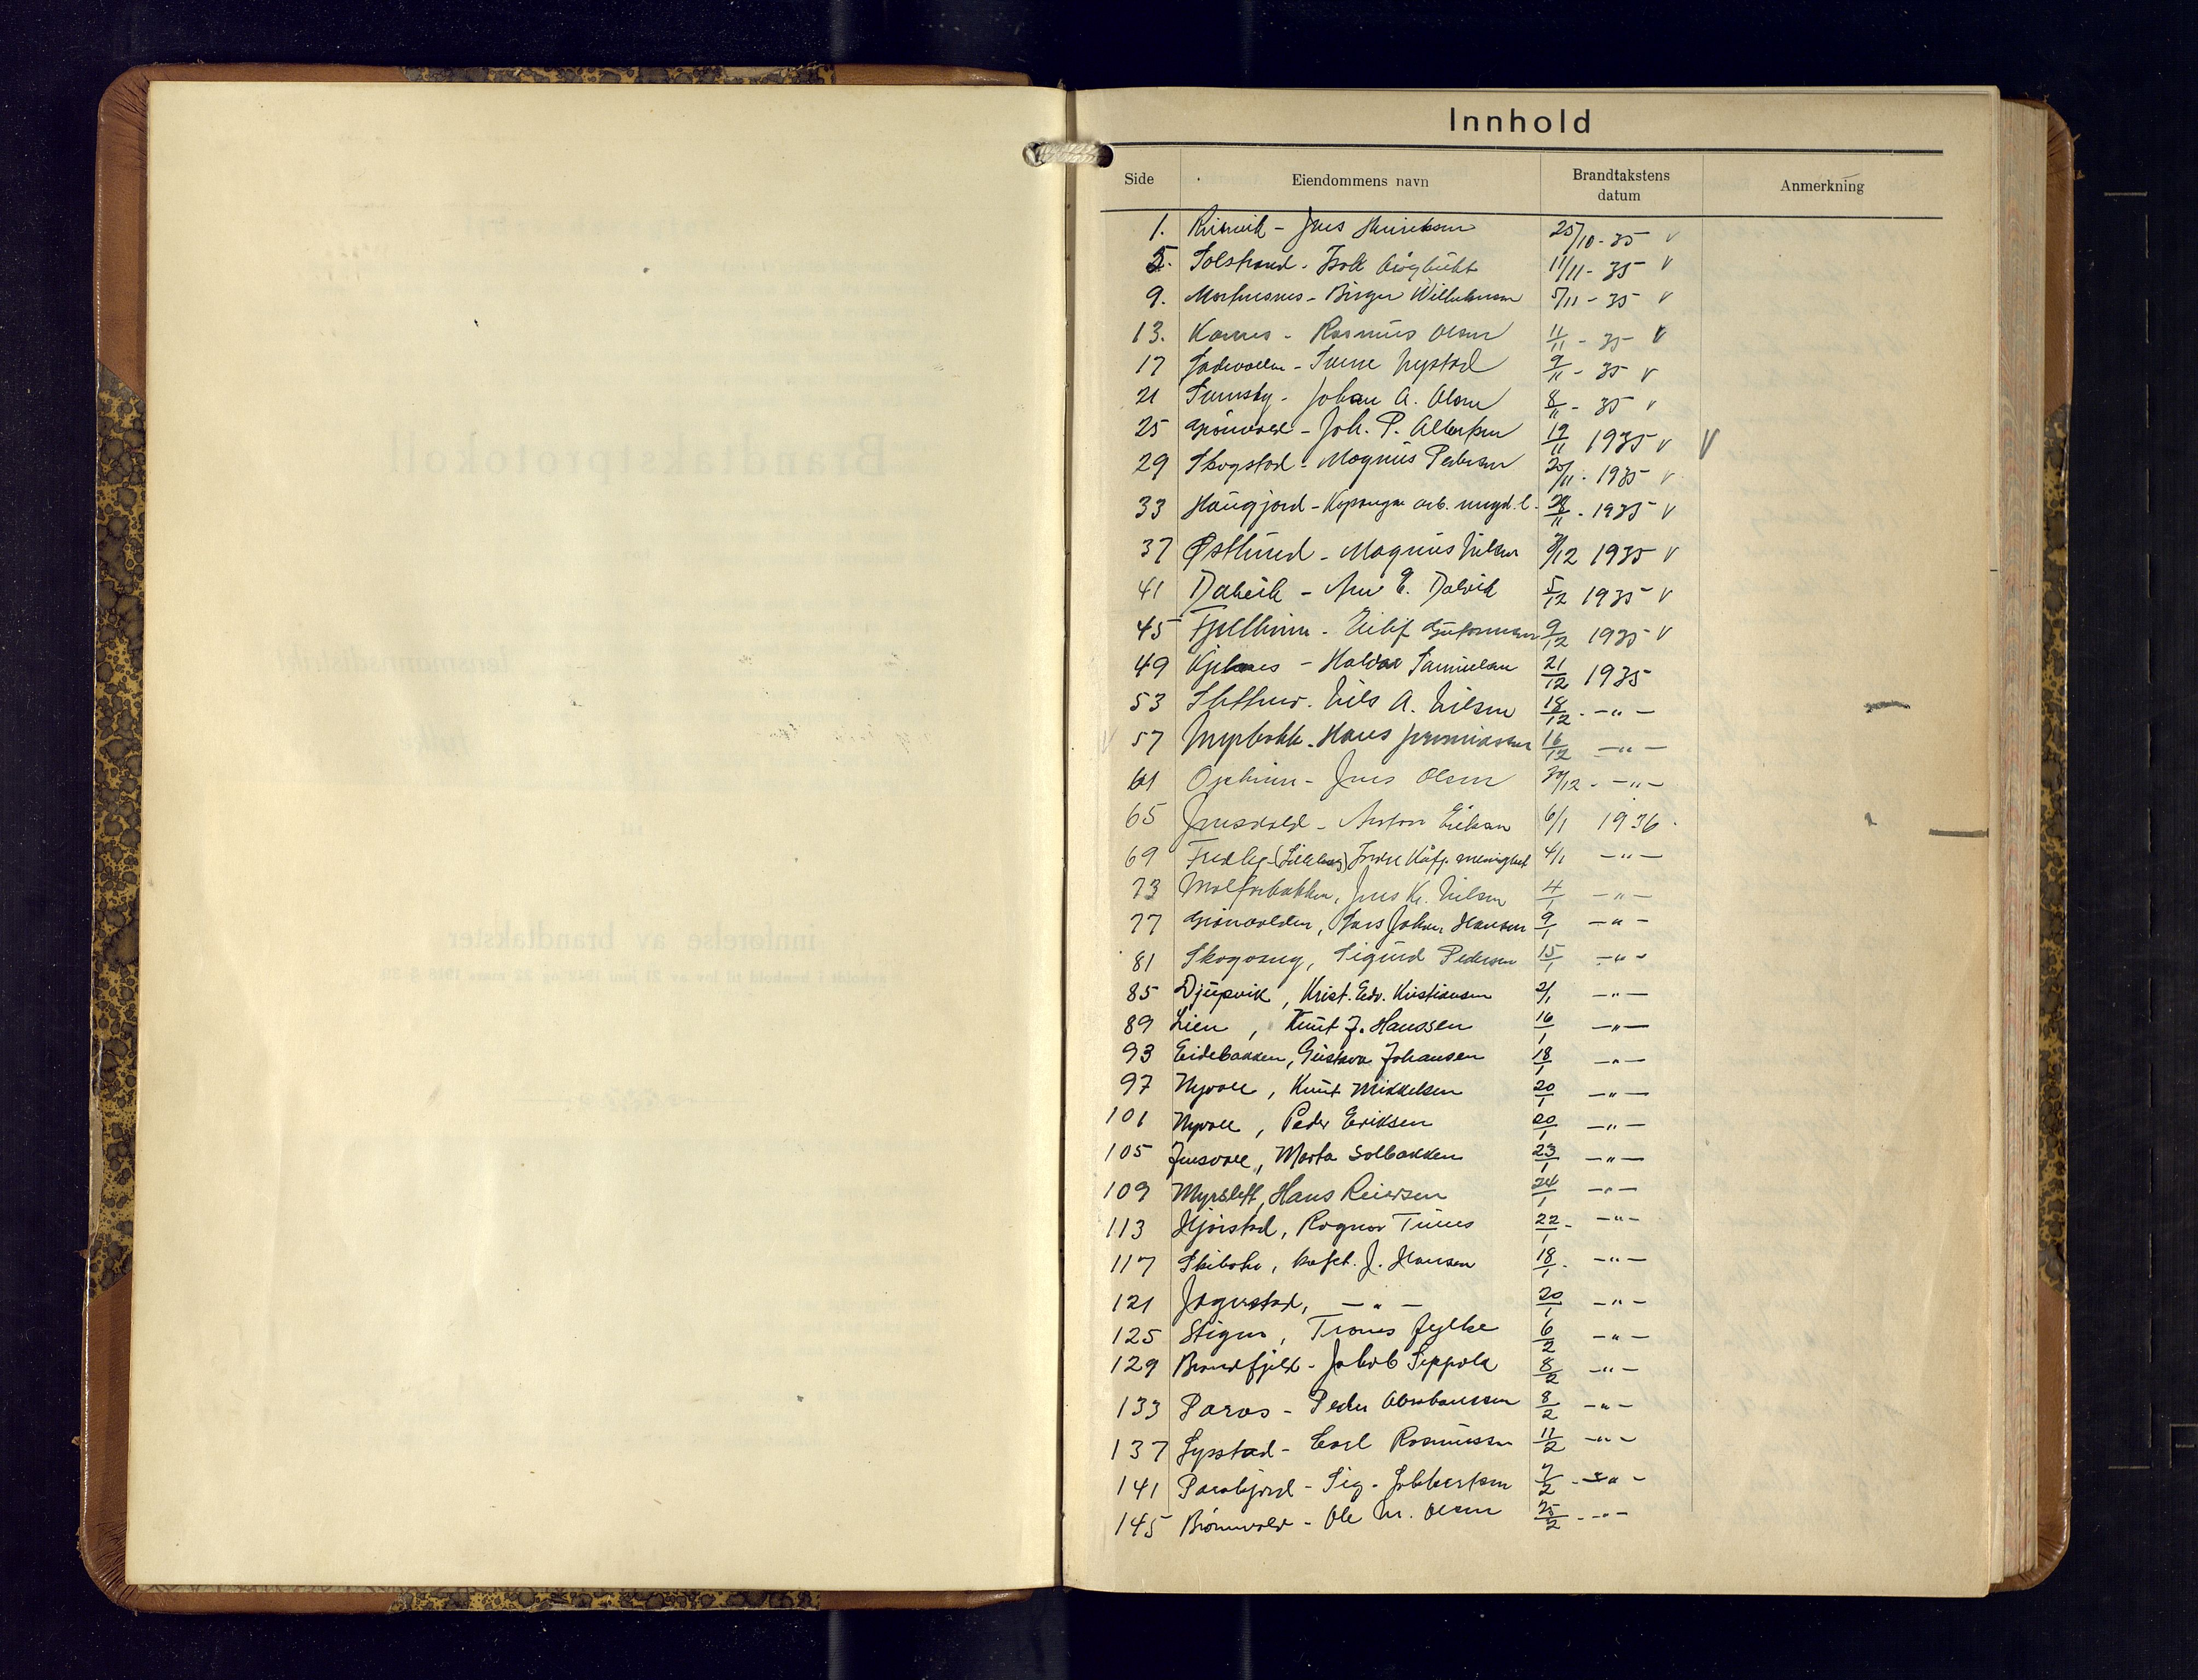 Innhold
Side Eiendommens navn Brandtakstens datum Anmerkning
1. - Jens Henriksen 25/10-35 v
5. Solstrand - 11/11-35 v
9. - Birger Wilhelmsen 5/11-35 v
13. Karnes - Rasmus Olsen 11/11-35 v
17 - Sverre Nystad 9/11-35 v
21 - Johan A. Olsen 8/11-35 v
25 Grönvold - Joh. P. Albertsen 19/11 1935 v V
29 Skogstad - Magnus Pedersen 20/11-1935 v
33 Haugjord - arb. ungd.l. 28/11-1935 v
37 Østlund - Magnus Nilsen /12 1935 v
41 Dalvik - E. Dalvik 5/12 1935 v
45 Fjellheim - Eilif 9/12 1935 v
49 Kjelnes - Halvar Samuelsen 21/12 1935
53 Nils A. Nilsen 18/12 - -"-
57 Myrbakk - Hans Jeremiassen 16/12 -"-
61 - Jens Olsen 30/12 - -"-
65 Jensvold - Anton Eriksen 6/1 1936
69 Fredly (Lilleberg) Indre Kåfj. menighet 4/1 -"-
73 Jens Kr. Nilsen 4/1 -"-
77 Grönvolden, Lars Johan Hansen 9/1 -"-
81 Skogeng, Sigurd Pedersen 15/1 -"-
85 Djupvik, Krist. Edv. Kristiansen 2/1 -"-
89 Lien, Knut J. Hanssen 16/1 -"-
93 Eidebakken, Gustava Johansen 18/1 -"-
97 Nyvoll, Knut Mikkelsen 20/1 -"-
101 Nyvoll, Peder Eriksen 20/1 -"-
105 Jensvoll, Marta Solbakken 23/1 -"-
109 Myrslett, Hans Reiersen 24/1 -"-
113 Hjörstad, Ragnar 22/1 - -"-
117 Skibotn, J. Hansen 18/1 - -"-
121 Jagerstad, -"- 20/1 -"-
125 Stigen, Troms fylke 6/2 -"-
129 Brandfjell - Jakob Seppola 8/2 -"-
133 Paras - Peder Abrahamsen 8/2 -"-
137 Lysstad - Carl Rasmussen 11/2 -"-
141 Parasfjord - Sig. Jobbertsen 7/2 - -"-
145 - Ole M. Olsen 25/2 - -"-